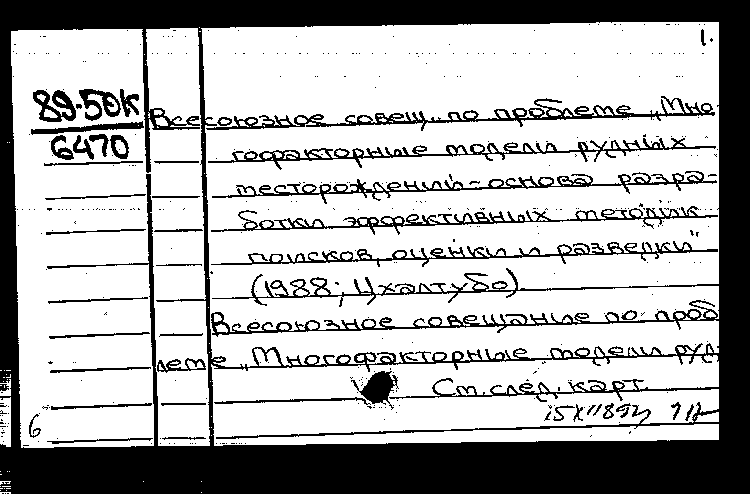 1.
89-50К
6470
Всесоюзное совещ. по проблеме „Мно-
гофакторные модели рудных
месторождений - основа разра-
ботки эффективных методик
поисков, оценки и разведки"
(1988; Цхалтубо).
Всесоюзное совещание по проб
леме „Многофакторные модели руд
См. след. карт.
6